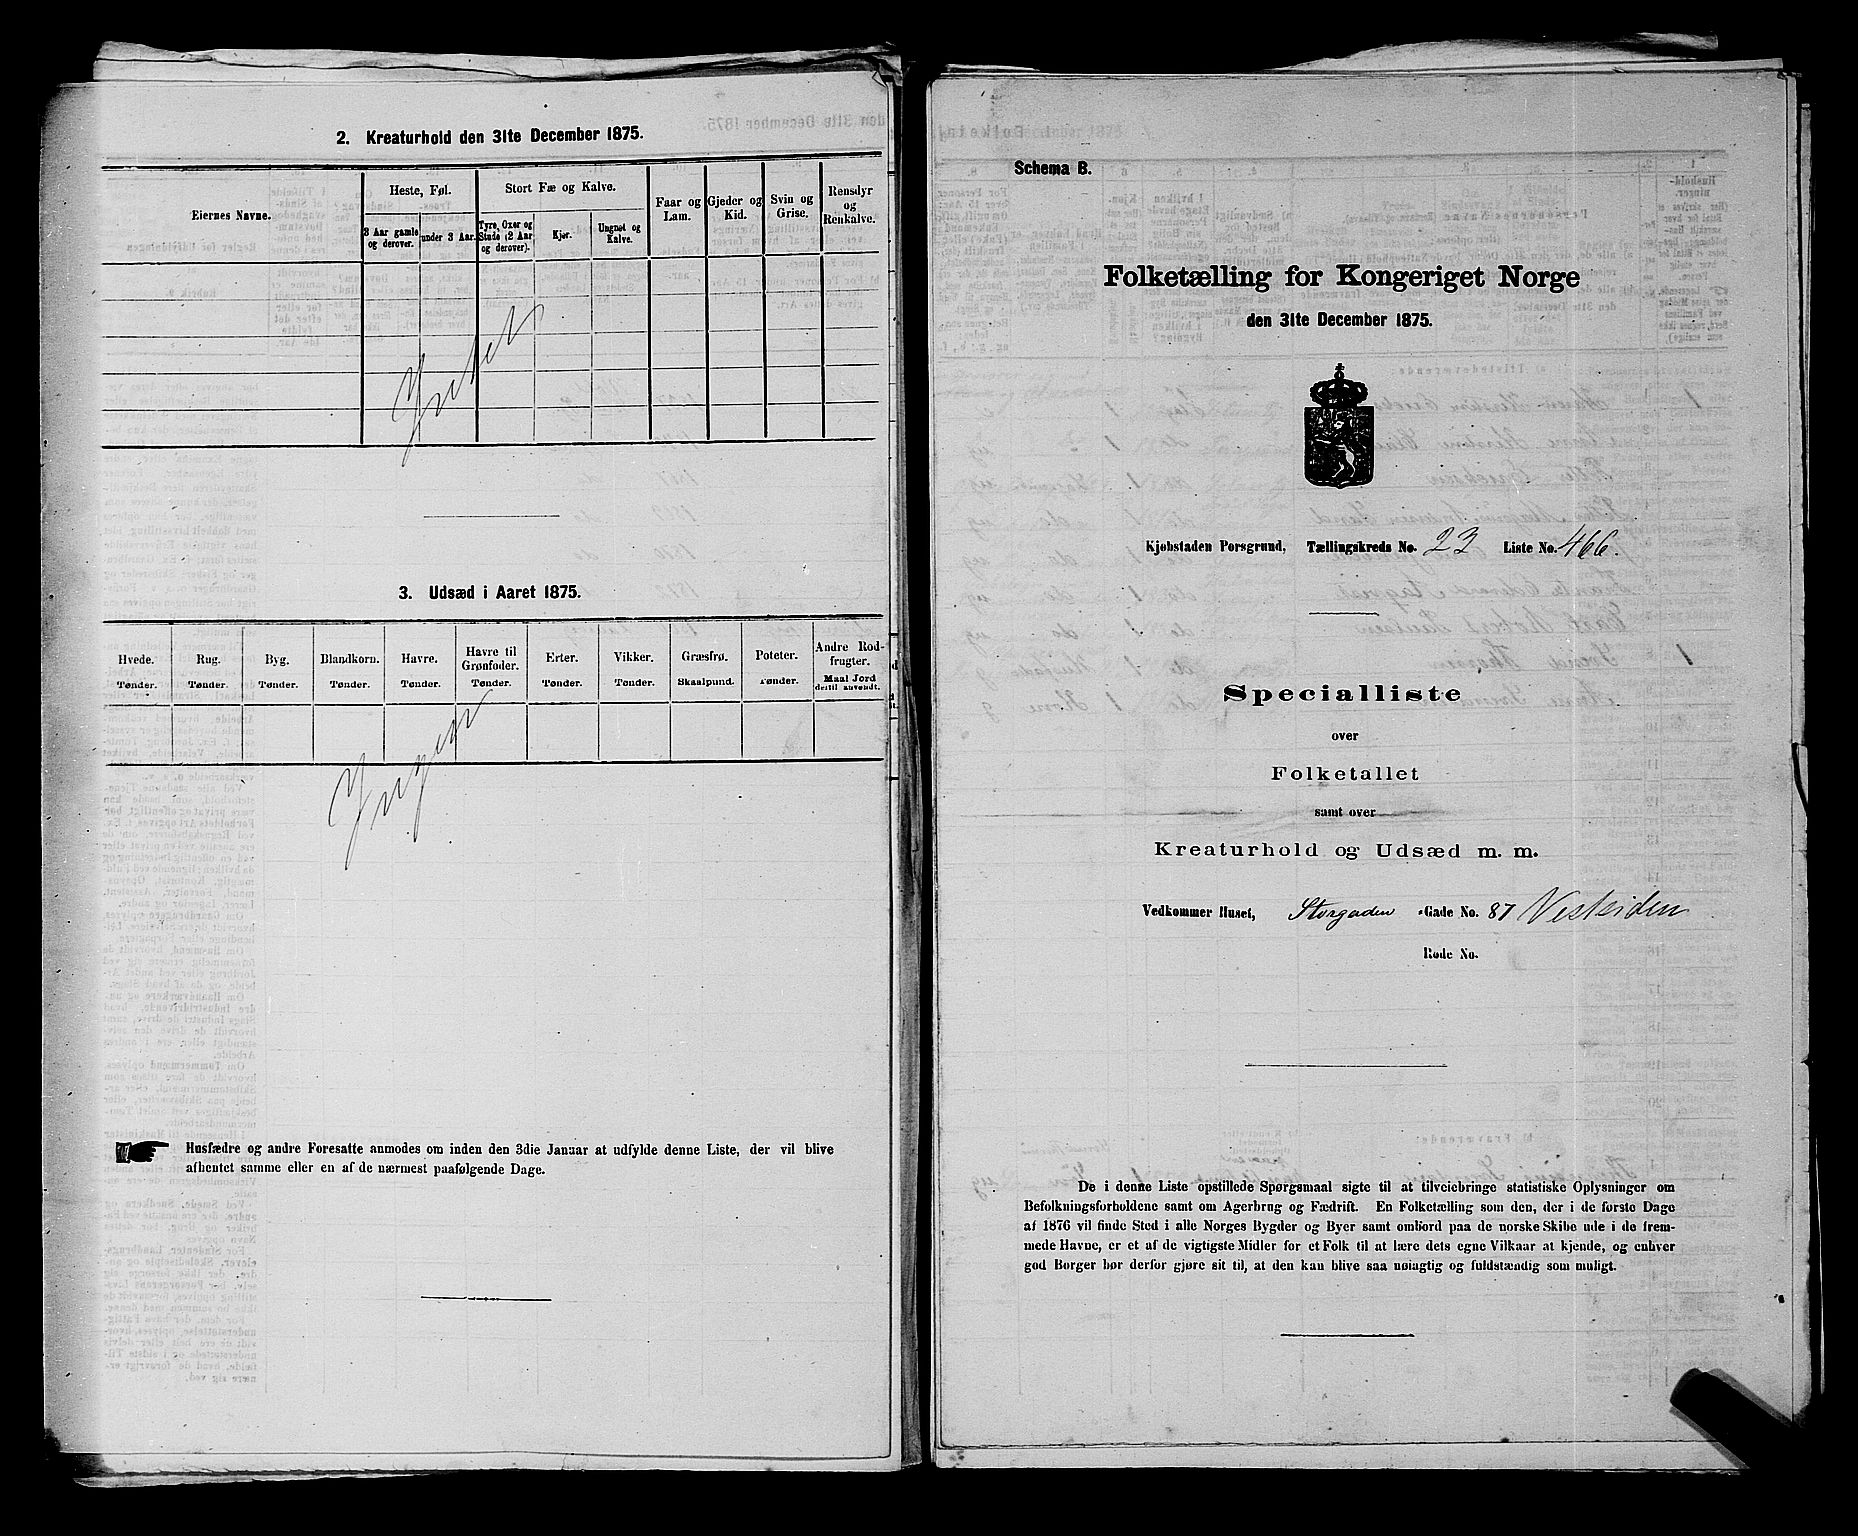 2. Kreaturhold den 31te December 1875.
Eiernes Navne.
Heste, Føl.
3 Aar gamle og derover.
under 3 Aar.
Stort Fæ og Kalve.
Tyre, Oxer og Stude (2 Aar og derover).
Kjør.
Ungnøt og Kalve.
Faar og Lam.
Gjeder og Kid.
Svin og Grise.
Rensdyr og Renkalve.
Intet
3. Udsæd i Aaret 1875.
Hvede. Rug. Byg. Blandkorn. Havre. Havre til Grønfoder. Erter. Vikker. Græsfrø. Poteter. Andre Rodfrugter.
Tønder. Tønder. Tønder. Tønder. Tønder. Tønder. Tønder. Tønder. Skaalpund. Tønder. Maal Jord dertil anvendt.
Ingen
Husfædre og andre Foresatte anmodes om inden den 3die Januar at udfylde denne Liste, der vil blive
afhentet samme eller en af de nærmest paafølgende Dage.
Schema B.
Folketælling for Kongeriget Norge
den 31te December 1875.
Kjøbstaden Porsgrund, Tællingskreds No. 23 Liste No. 466.
Specialliste
over
Folketallet
samt over
Kreaturhold og Udsæd m. m.
Vedkommer Huset, Storgaden -Gade No. 87 Vestsiden
Rode No.
De i denne Liste opstillede Spørgsmaal sigte til at tilveiebringe statistiske Oplysninger om
Befolkningsforholdene samt om Agerbrug og Fædrift. En Folketælling som den, der i de første Dage
af 1876 vil finde Sted i alle Norges Bygder og Byer samt ombord paa de norske Skibe ude i de frem-
mede Havne, er et af de vigtigste Midler for et Folk til at lære dets egne Vilkaar at kjende, og enhver
god Borger bør derfor gjøre sit til, at den kan blive saa nøiagtig og fuldstændig som muligt.